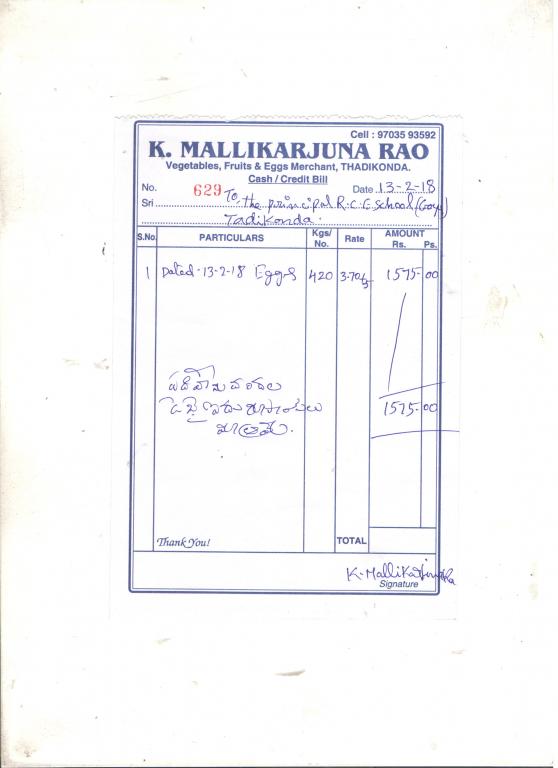 Cell : 97035 93592
K. MALLIKARJUNA RAO
Vegetables, Fruits & Eggs Merchant, THADIKONDA.
Cash / Credit Bill
No. 629 Date 13-2-18
Sri To the principal R.C.E. School (Boys)
Tadikonda.
S.No. PARTICULARS Kgs/ No. Rate AMOUNT Rs. Ps.
1 Dated - 13-2-18 Eggs 420 1575-00
పదిహేను వందల
డెబ్బై ఐదు రూపాయలు 1575-00
మాత్రమే.
Thank You! TOTAL
K. Mallikarjuna
Signature